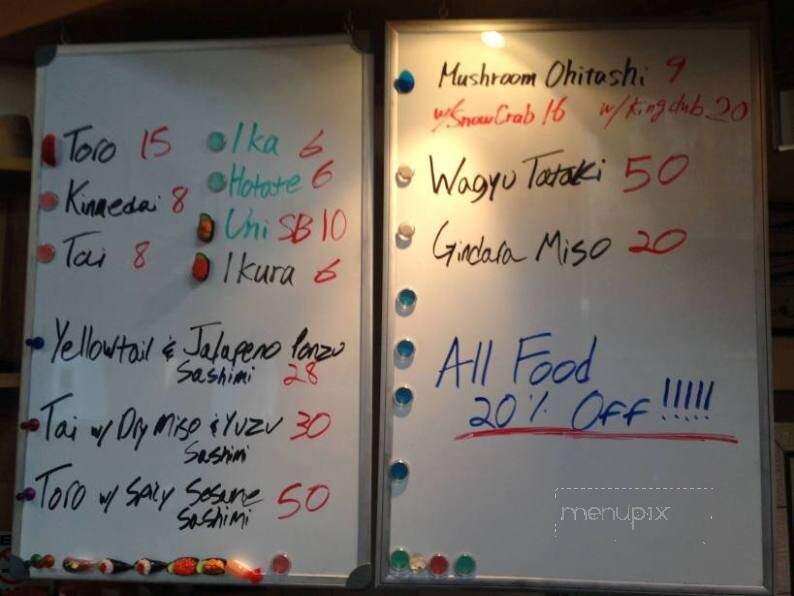 Toro 15
Kinmedai 8
Tai 8
Ika 6
Hotate 6
Uni SB 10
Ikura 6
Yellowtail & Jalapeno Ponzu
Sashimi 28
Tai w/ Dry Miso & Yuzu 30
Sashimi
Toro w/ Spicy Sesame 50
Sashimi
Mushroom Ohitashi 9
w/ Snow Crab 16 w/ King club 20
Wagyu Tataki 50
Gindara Miso 20
All Food
20% Off!!!!!
menupix